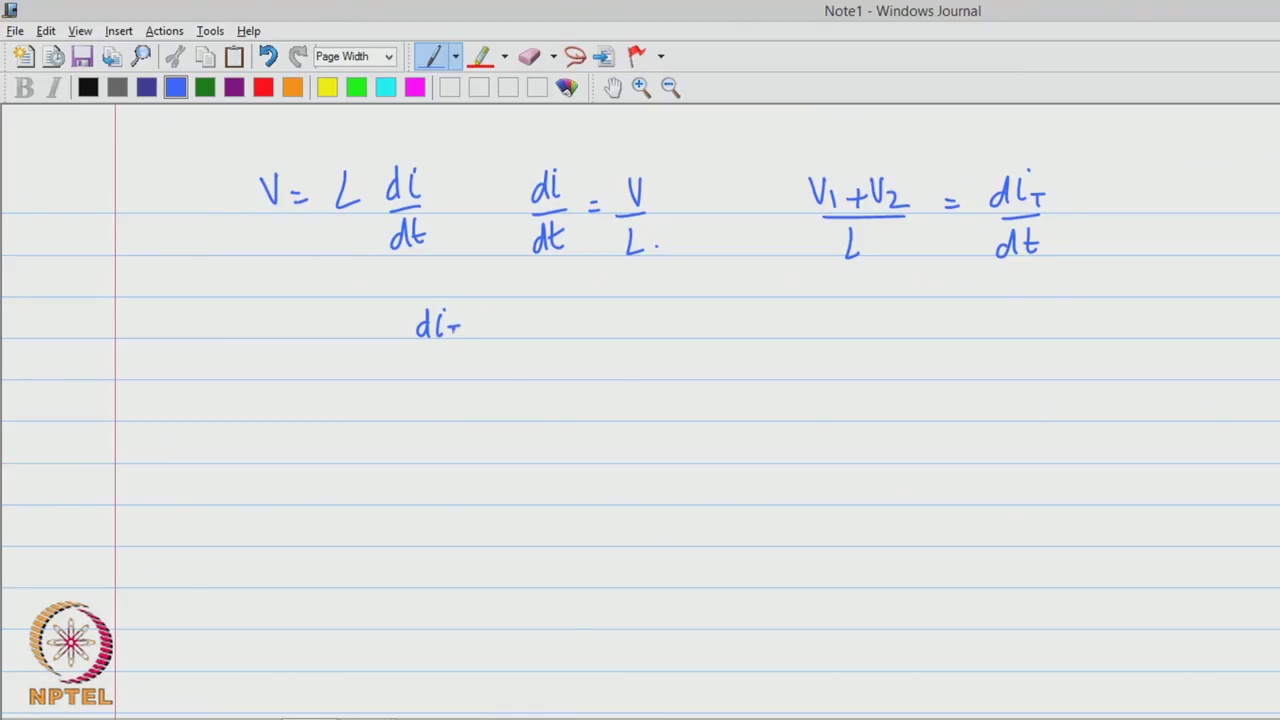 Note1 - Windows Journal
File Edit View Insert Actions Tools Help
Page Width
B I
V = L di/dt di/dt = V/L. V1+V2/L = diT/dt
diT
NPTEL